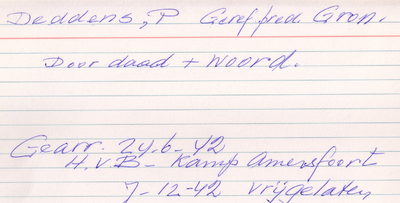 Deddens, P Geref. pred. Gron.
Door daad + Woord.
Gearr. 24-6-42
H.v.B - Kamp Amersfoort
7-12-42 vrijgelaten